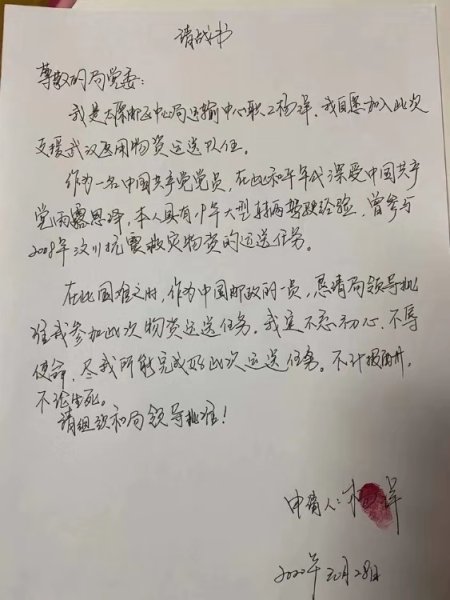 请战书
尊敬的局党委：
我是太原邮区中心局运输中心职工杨洋，我自愿加入此次
支援武汉医用物资运送队伍。
作为一名中国共产党党员，在此和平年代深受中国共产
党雨露恩泽，本人具有19年大型车辆驾驶经验，曾参与
2008年汶川抗震救灾物资的运送任务。
在此国难之时，作为中国邮政的一员，恳请局领导批
准我参加此次物资运送任务。我定不忘初心，不辱
使命，尽我所能完成好此次运送任务。不计报酬，
不论生死。
请组织和局领导批准！
申请人：杨洋
2020年元月28日